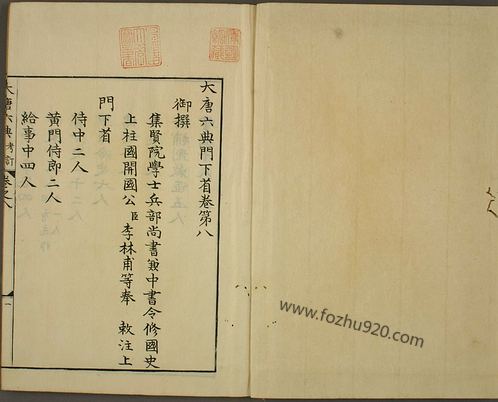 大唐六典門下省卷第八
御撰
集賢院學士兵部尚書兼中書令修國史
上柱國開國公臣李林甫等奉 敕注上
門下省
侍中二人
黃門侍郎二人
給事中四人
大唐六典考訂 卷之八
一
www.fozhu920.com